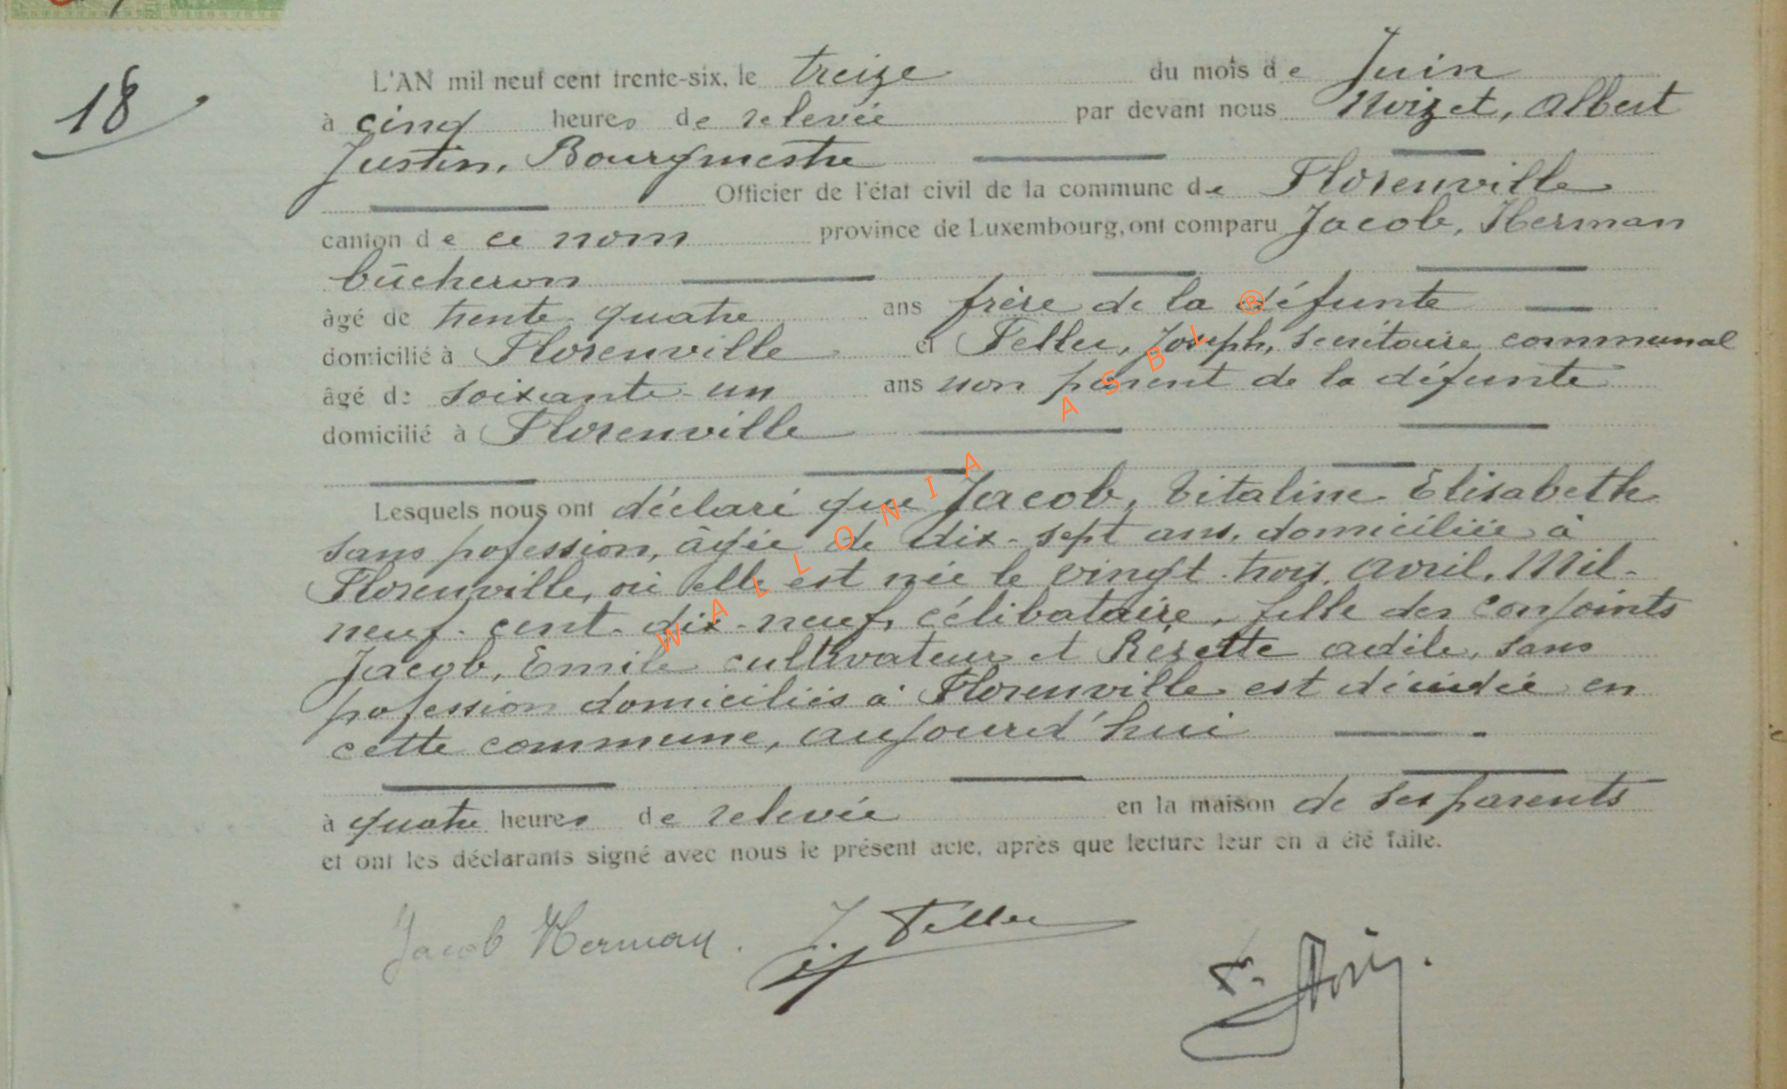 18
L'AN mil neuf cent trente-six, le treize du mois de Juin
à cinq heures de relevée par devant nous Noizet, Albert
Justin, Bourgmestre
Officier de l'état civil de la commune de Florenville
canton de ce nom province de Luxembourg, ont comparu Jacob, Herman
bûcheron
âgé de trente-quatre ans frère de la défunte
domicilié à Florenville et Feller, Joseph, secrétaire communal
âgé de soixante-un ans non parent de la défunte
domicilié à Florenville
Lesquels nous ont déclaré que Jacob, Vitaline Elisabeth
sans pofession, âgée de dix-sept ans, domiciliée à
Florenville, où elle est née le vingt-trois, avril, Mil-
neuf-cent-dix-neuf, célibataire, fille des conjoints
Jacob, Emile cultivateur et Rézette adile, sans
pofession domiciliés à Florenville est décédée en
cette commune, aujourd'hui
à quatre heures de relevée en la maison de ses parents
et ont les déclarants signé avec nous le présent acte, après que lecture leur en a été faite.
Jacob Herman. J. Feller
WALLONIA ASBL ®